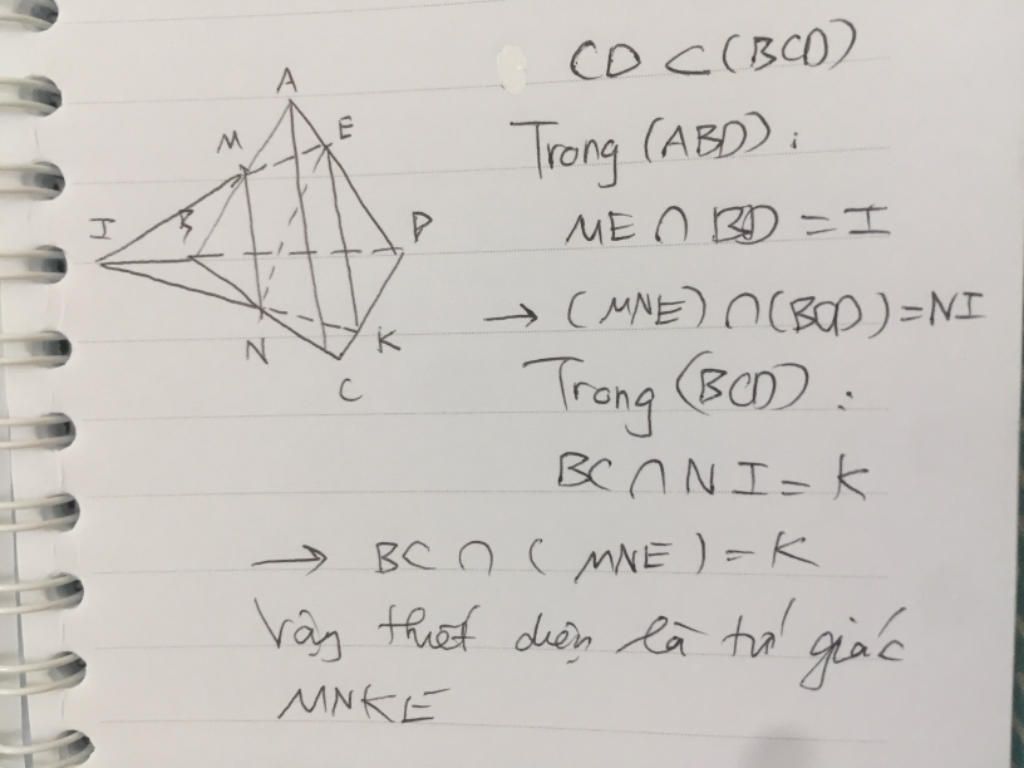 A
M
E
I
B
D
N
K
C
CD ⊂ (BCD)
Trong (ABD) :
ME ∩ BD = I
→ (MNE) ∩ (BCD) = NI
Trong (BCD) :
BC ∩ NI = K
→ BC ∩ (MNE) = K
Vậy thiết diện là tứ giác
MNKE